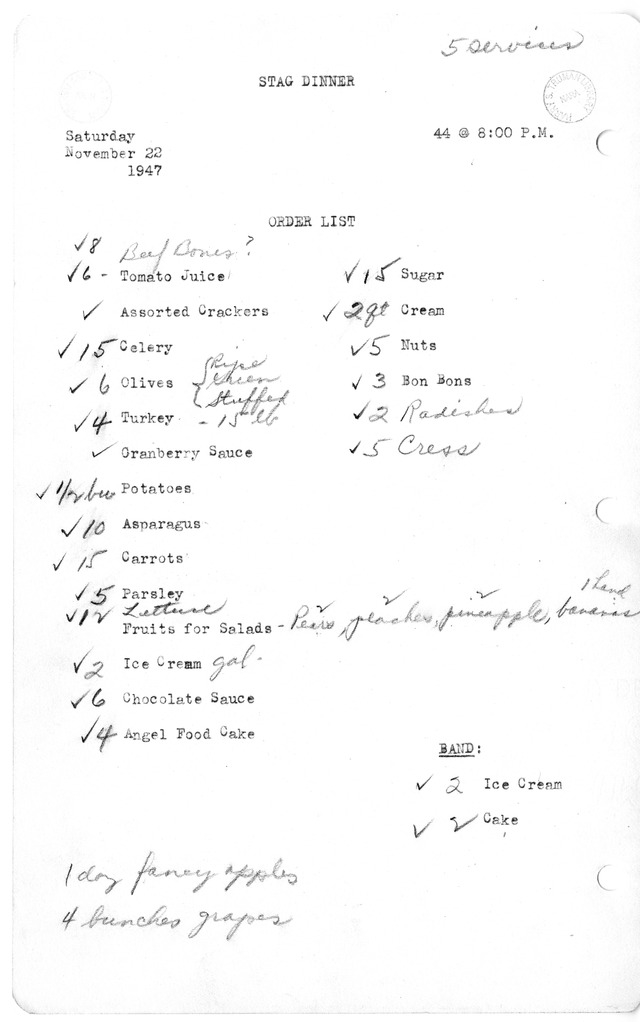 5 services
STAG DINNER
Saturday
November 22
1947
44 @ 8:00 P.M.
ORDER LIST
✓8 Beef Bones?
✓6 - Tomato Juice
✓ Assorted Crackers
✓15 Celery
✓6 Olives { Ripe Green Stuffed
✓4 Turkey - 15 lb
✓ Cranberry Sauce
✓1/2 bu Potatoes
✓10 Asparagus
✓15 Carrots
✓5 Parsley
✓12 Lettuce
Fruits for Salads - Pears, peaches, pineapple, bananas
2 2 2 1 hand
✓2 Ice Cream gal.
✓6 Chocolate Sauce
✓4 Angel Food Cake
✓15 Sugar
✓2qt Cream
✓5 Nuts
✓3 Bon Bons
✓2 Radishes
✓5 Cress
BAND:
✓ 2 Ice Cream
✓ 2 Cake
1 doz fancy apples
4 bunches grapes